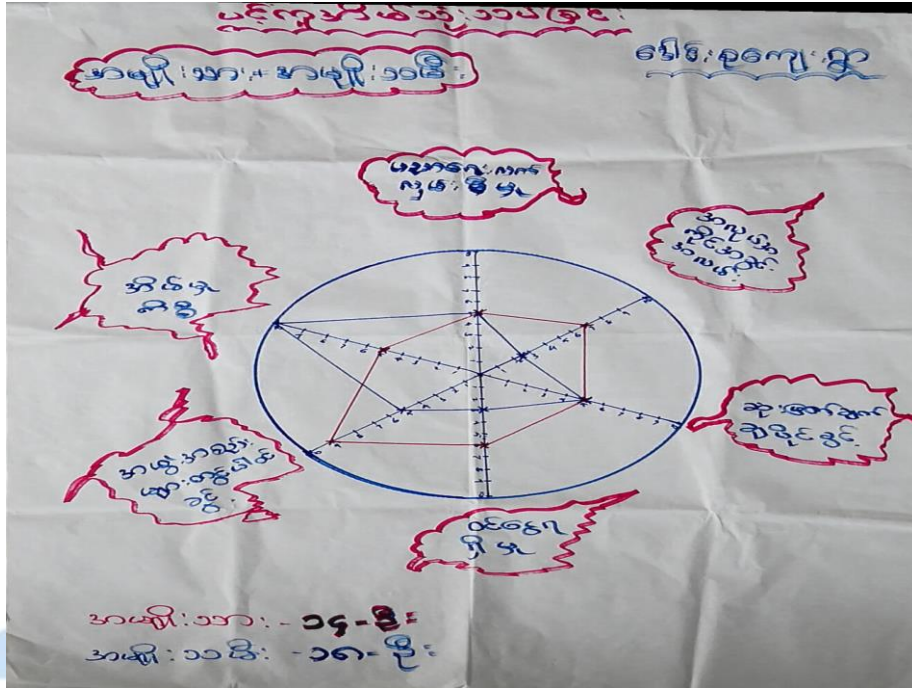 ပင့်ကူအိမ်သုံးသပ်ခြင်း
အမျိုးသား + အမျိုးသမီး
ရွာ
ပညာရေး လက်
လှမ်းမီမှု
အလုပ်အ
ကိုင်အခွင့်
အလမ်း
အိမ်မှု
ကိစ္စ
ဆုံးဖြတ်ချက်
ချပိုင်ခွင့်
အဖွဲ့အစည်း
များတွင်ပါဝင်
ခွင့်
ဝင်ငွေရ
ရှိမှု
အမျိုးသား - ၁၄ - ဦး
အမျိုးသမီး - ၁၈ - ဦး